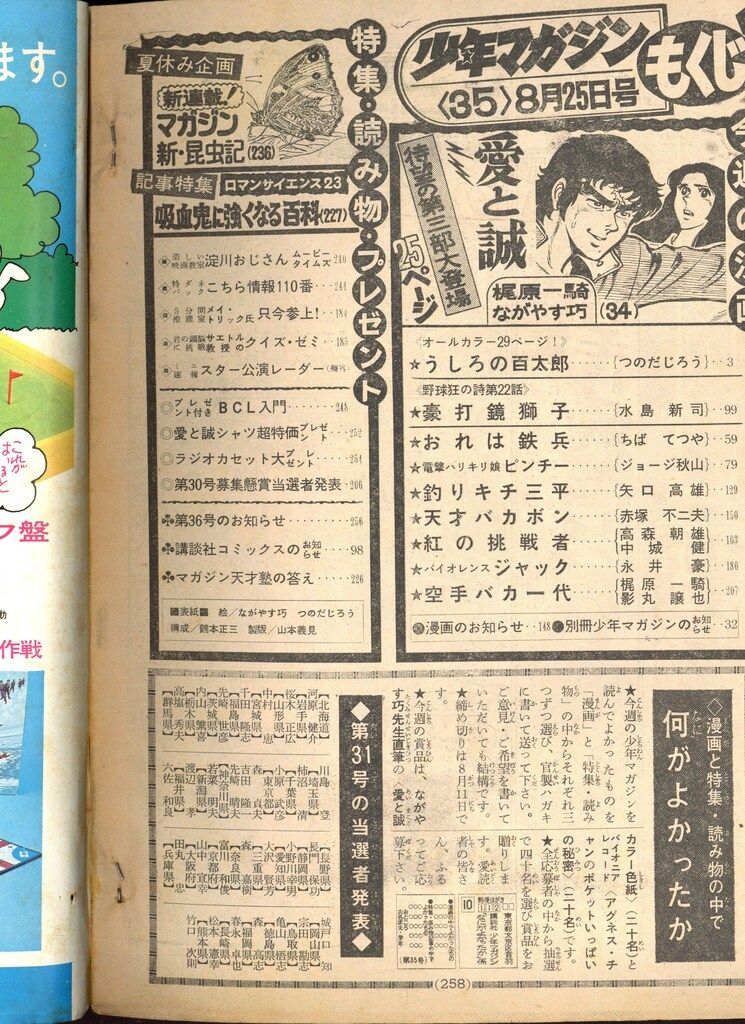 少年マガジン
もくじ
〈35〉8月25日号
今週の漫画
待望の第三部大登場
25ページ
愛と誠
梶原一騎
ながやす巧
(34)
〈オールカラー29ページ!〉
★うしろの百太郎……{つのだじろう}‥3
〈野球狂の詩第22話〉
★豪打鏡獅子……{水島新司}‥99
★おれは鉄兵……{ちばてつや}‥59
★電撃ハリキリ娘ピンチー……{ジョージ秋山}‥79
★釣りキチ三平……{矢口高雄}‥129
★天才バカボン……{赤塚不二夫}‥150
★紅の挑戦者……{高森朝雄 中城健}‥163
★バイオレンスジャック……{永井豪}‥186
★空手バカ一代……{梶原一騎 影丸譲也}‥207
漫画のお知らせ‥148
別冊少年マガジンのお知らせ‥32
特集・読み物・プレゼント
夏休み企画
新連載!
マガジン
新・昆虫記(236)
記事特集 ロマンサイエンス23
吸血鬼に強くなる百科(227)
楽しい映画教室 淀川おじさんムービータイムズ 240
特ダネパック こちら情報110番‥244
5分間推理室 メイ・トリック氏 只今参上!‥184
君の頭脳に挑戦 サエトル教授のクイズ・ゼミ‥185
ミニ速報 スター公演レーダー(欄外)
◎プレゼント付き BCL入門………248
◎愛と誠シャツ超特価プレゼント‥252
◎ラジオカセット大プレゼント‥254
◎第30号募集懸賞当選者発表‥206
♣第36号のお知らせ………256
♣講談社コミックスのお知らせ‥98
♣マガジン天才塾の答え…226
表紙 絵/ながやす巧 つのだじろう
構成/鶴本正三 製版/山本義見
◇漫画と特集・読み物の中で
何がよかったか
★今週の少年マガジンを
読んでよかったものを
「漫画」と「特集・読み
物」の中からそれぞれ三
つずつ選び、官製ハガキ
に書いて送って下さい。
ご意見・ご希望を書いて
いただいても結構です。
★締め切りは8月11日で
す。
★今週の賞品は、ながや
す巧先生直筆の〈愛と誠
カラー色紙〉(二十名)と
パイオニア
レコード〈アグネス・チ
ャンのポケットいっぱい
の秘密〉(二十名)です。
★応募者の中から抽選
で四十名を選び賞品をお
贈りします。愛読
者の皆さ
ん、ふる
ってご応
募下さい。
10
東京都文京区音羽
講談社 少年マガジン
(第35号)
◆第31号の当選者発表◆
【北海道】
河原健介
【岩手県】
桜木正広
【山形県】
中村忠
【宮城県】
千田隆志
【福島県】
先崎世
【茨城県】
内山繁喜
【栃木県】
高塩秀夫
【群馬県】
川島登
【埼玉県】
柿沼清
【千葉県】
小原武彦
【東京都】
森貞夫
吉田隆一
先崎晴夫
【神奈川県】
若菜明
【新潟県】
渡辺孝
【福井県】
六佐和良
【長野県】
長門保功
【静岡県】
小野川幸男
【愛知県】
大沢賢芳
【三重県】
森嘉樹
【奈良県】
富川和俊
【京都府】
山中宜幸
【大阪府】
田丸忠
【兵庫県】
城戸口
【岡山県】
宗田勘志
【鳥取県】
亀山悟志
【徳島県】
森高志
【福岡県】
春永卓也
【長崎県】
松本憲幸
【熊本県】
竹口次則
(258)
ます。
これが
フ盤
作戦